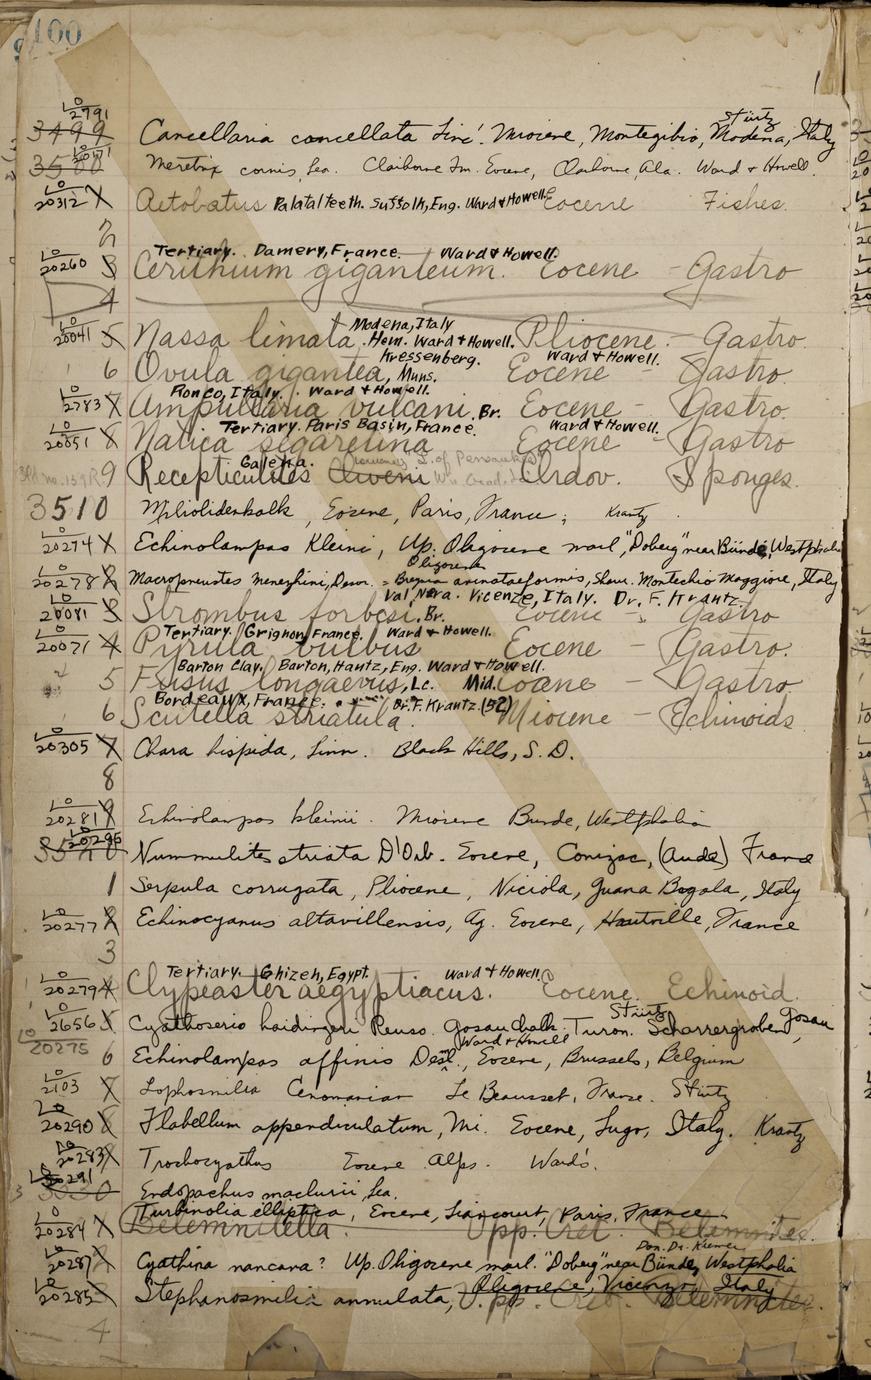 100
LO 2791
3499 Cancellaria cancellata Linn. Miocene, Montegibio, Modena, Italy Stürtz
3500 Meretrix cornis, Lea. Claiborne Fm. Eocene, Claiborne, Ala. Ward & Howell.
LO 20312 X Aetobatus Palatal teeth. Suffolk, Eng. Ward & Howell. Eocene Fishes.
2
Tertiary. Damery, France. Ward & Howell.
LO 20260 3 Cerithium giganteum. Eocene - Gastro
4
Modena, Italy
LO 20041 5 Nassa limata. Hom. Ward & Howell. Pliocene - Gastro.
Kressenberg. Ward & Howell.
6 Ovula gigantea, Muns. Eocene - Gastro.
Ronco, Italy. Ward & Howell.
LO 2783 7 Ampullaria vulcani. Br. Eocene - Gastro.
Tertiary. Paris Basin, France. Ward & Howell.
LO 20051 8 Natica sigaretina Eocene - Gastro
Galena.
9 Recepticulites Oweni Ordov. Sponges.
3510 Miliolidenkalk, Eocene, Paris, France; Krantz.
LO 20274 X Echinolampas Kleini, Up. Oligocene marl, "Doberg" near Bünde, Westphalia
Oligocene
LO 20278 2 Macropneustes meneghini, Desor. = Breynia Montechio Maggiore, Italy
Val Nera. Vicenze, Italy. Dr. F. Krantz.
LO 20081 3 Strombus forbesi. Br. Eocene - Gastro
Tertiary. Grignon, France. Ward & Howell.
LO 20071 4 Pyrula bulbus Eocene - Gastro.
Barton Clay. Barton, Hantz, Eng. Ward & Howell.
5 Fusus longaevus, Lc. Mid. Eocane - Gastro
Bordeaux, France. Dr. F. Krantz. (52)
6 Scutella striatula. Miocene - Echinoids
LO 20305 7 Chara hispida, Linn. Black Hills, S.D.
8
LO 20281 9 Echinolampas kleinii. Miocene Bunde, Westphalia
LO 20296
3520 Nummulites striata D'Orb. Eocene, Conizac, (Aude) France
1 Serpula corrugata, Pliocene, Niciola, Guana Bagola, Italy
LO 20277 2 Echinocyanus altavillensis, Ag. Eocene, Hautville, France
3
Tertiary. Ghizeh, Egypt. Ward & Howell.
LO 20279 4 Clypeaster aegyptiacus. Eocene. Echinoid.
Stürtz
LO 2656 5 Cyathoserio haidingeri Reuss. Gosau chalk. Turon. Scharrergroben, Gosau
LO 20275 Ward & Howell
6 Echinolampas affinis Desl., Eocene, Brussels, Belgium
LO 2103 7 Lophosmilia Cenomanian Le Beausset, France. Stürtz
LO 20290 8 Flabellum appendiculatum, Mi. Eocene, Lugo, Italy. Krantz
LO 20283 9 Trochocyathus Eocene Alps. Ward's.
LO 20291
3530 Endopachus maclurii, Lea.
Turbinolia elliptica, Eocene, Liancourt, Paris, France
LO 20284 X Belemnitella. Upp. Cret. Belemnites.
Don. Dr. Kremer
LO 20287 X Cyathina nancana? Up. Oligocene marl. "Doberg" near Bünde, Westphalia
LO 20285 X Stephanosmilia annulata, Oligocene, Vicenza, Italy
Upp. Cret. Belemnites.
4